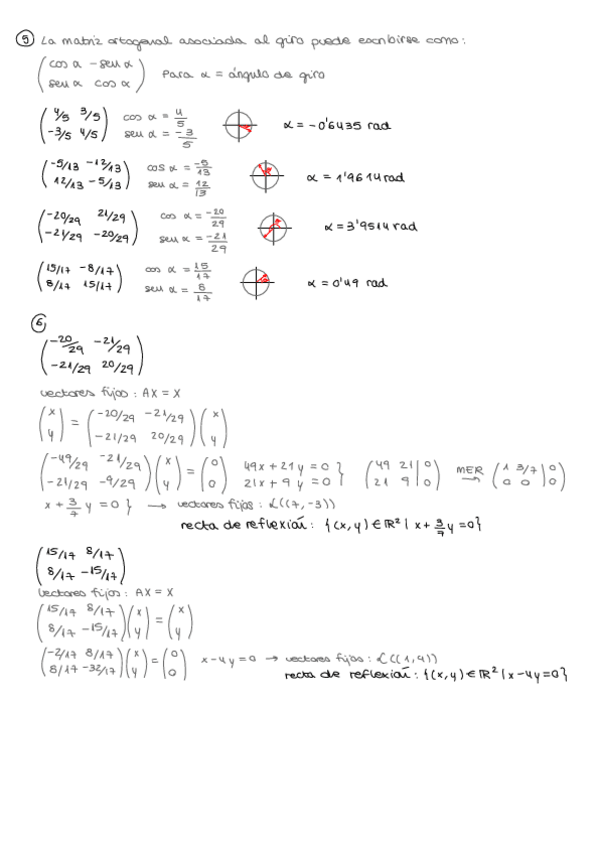 ⑤ La matriz ortogonal asociada al giro puede escribirse como:
(cos α -sen α
sen α cos α) Para α = ángulo de giro
(4/5 3/5
-3/5 4/5) cos α = 4/5
sen α = -3/5 α = -0'6435 rad
(-5/13 -12/13
12/13 -5/13) cos α = -5/13
sen α = 12/13 α = 1'9614 rad
(-20/29 21/29
-21/29 -20/29) cos α = -20/29
sen α = -21/29 α = 3'9514 rad
(15/17 -8/17
8/17 15/17) cos α = 15/17
sen α = 8/17 α = 0'49 rad
⑥
(-20/29 -21/29
-21/29 20/29)
vectores fijos: AX = X
(x
y) = (-20/29 -21/29
-21/29 20/29) (x
y)
(-49/29 -21/29
-21/29 -9/29) (x
y) = (0
0) 49x + 21y = 0
21x + 9y = 0 } (49 21 | 0
21 9 | 0) MER → (1 3/7 | 0
0 0 | 0)
x + 3/7 y = 0 } → vectores fijos: L((7, -3))
recta de reflexión: {(x, y) ∈ ℝ² | x + 3/7 y = 0}
(15/17 8/17
8/17 -15/17)
vectores fijos: AX = X
(15/17 8/17
8/17 -15/17) (x
y) = (x
y)
(-2/17 8/17
8/17 -32/17) (x
y) = (0
0) x - 4y = 0 → vectores fijos: L((1, 4))
recta de reflexión: {(x, y) ∈ ℝ² | x - 4y = 0}